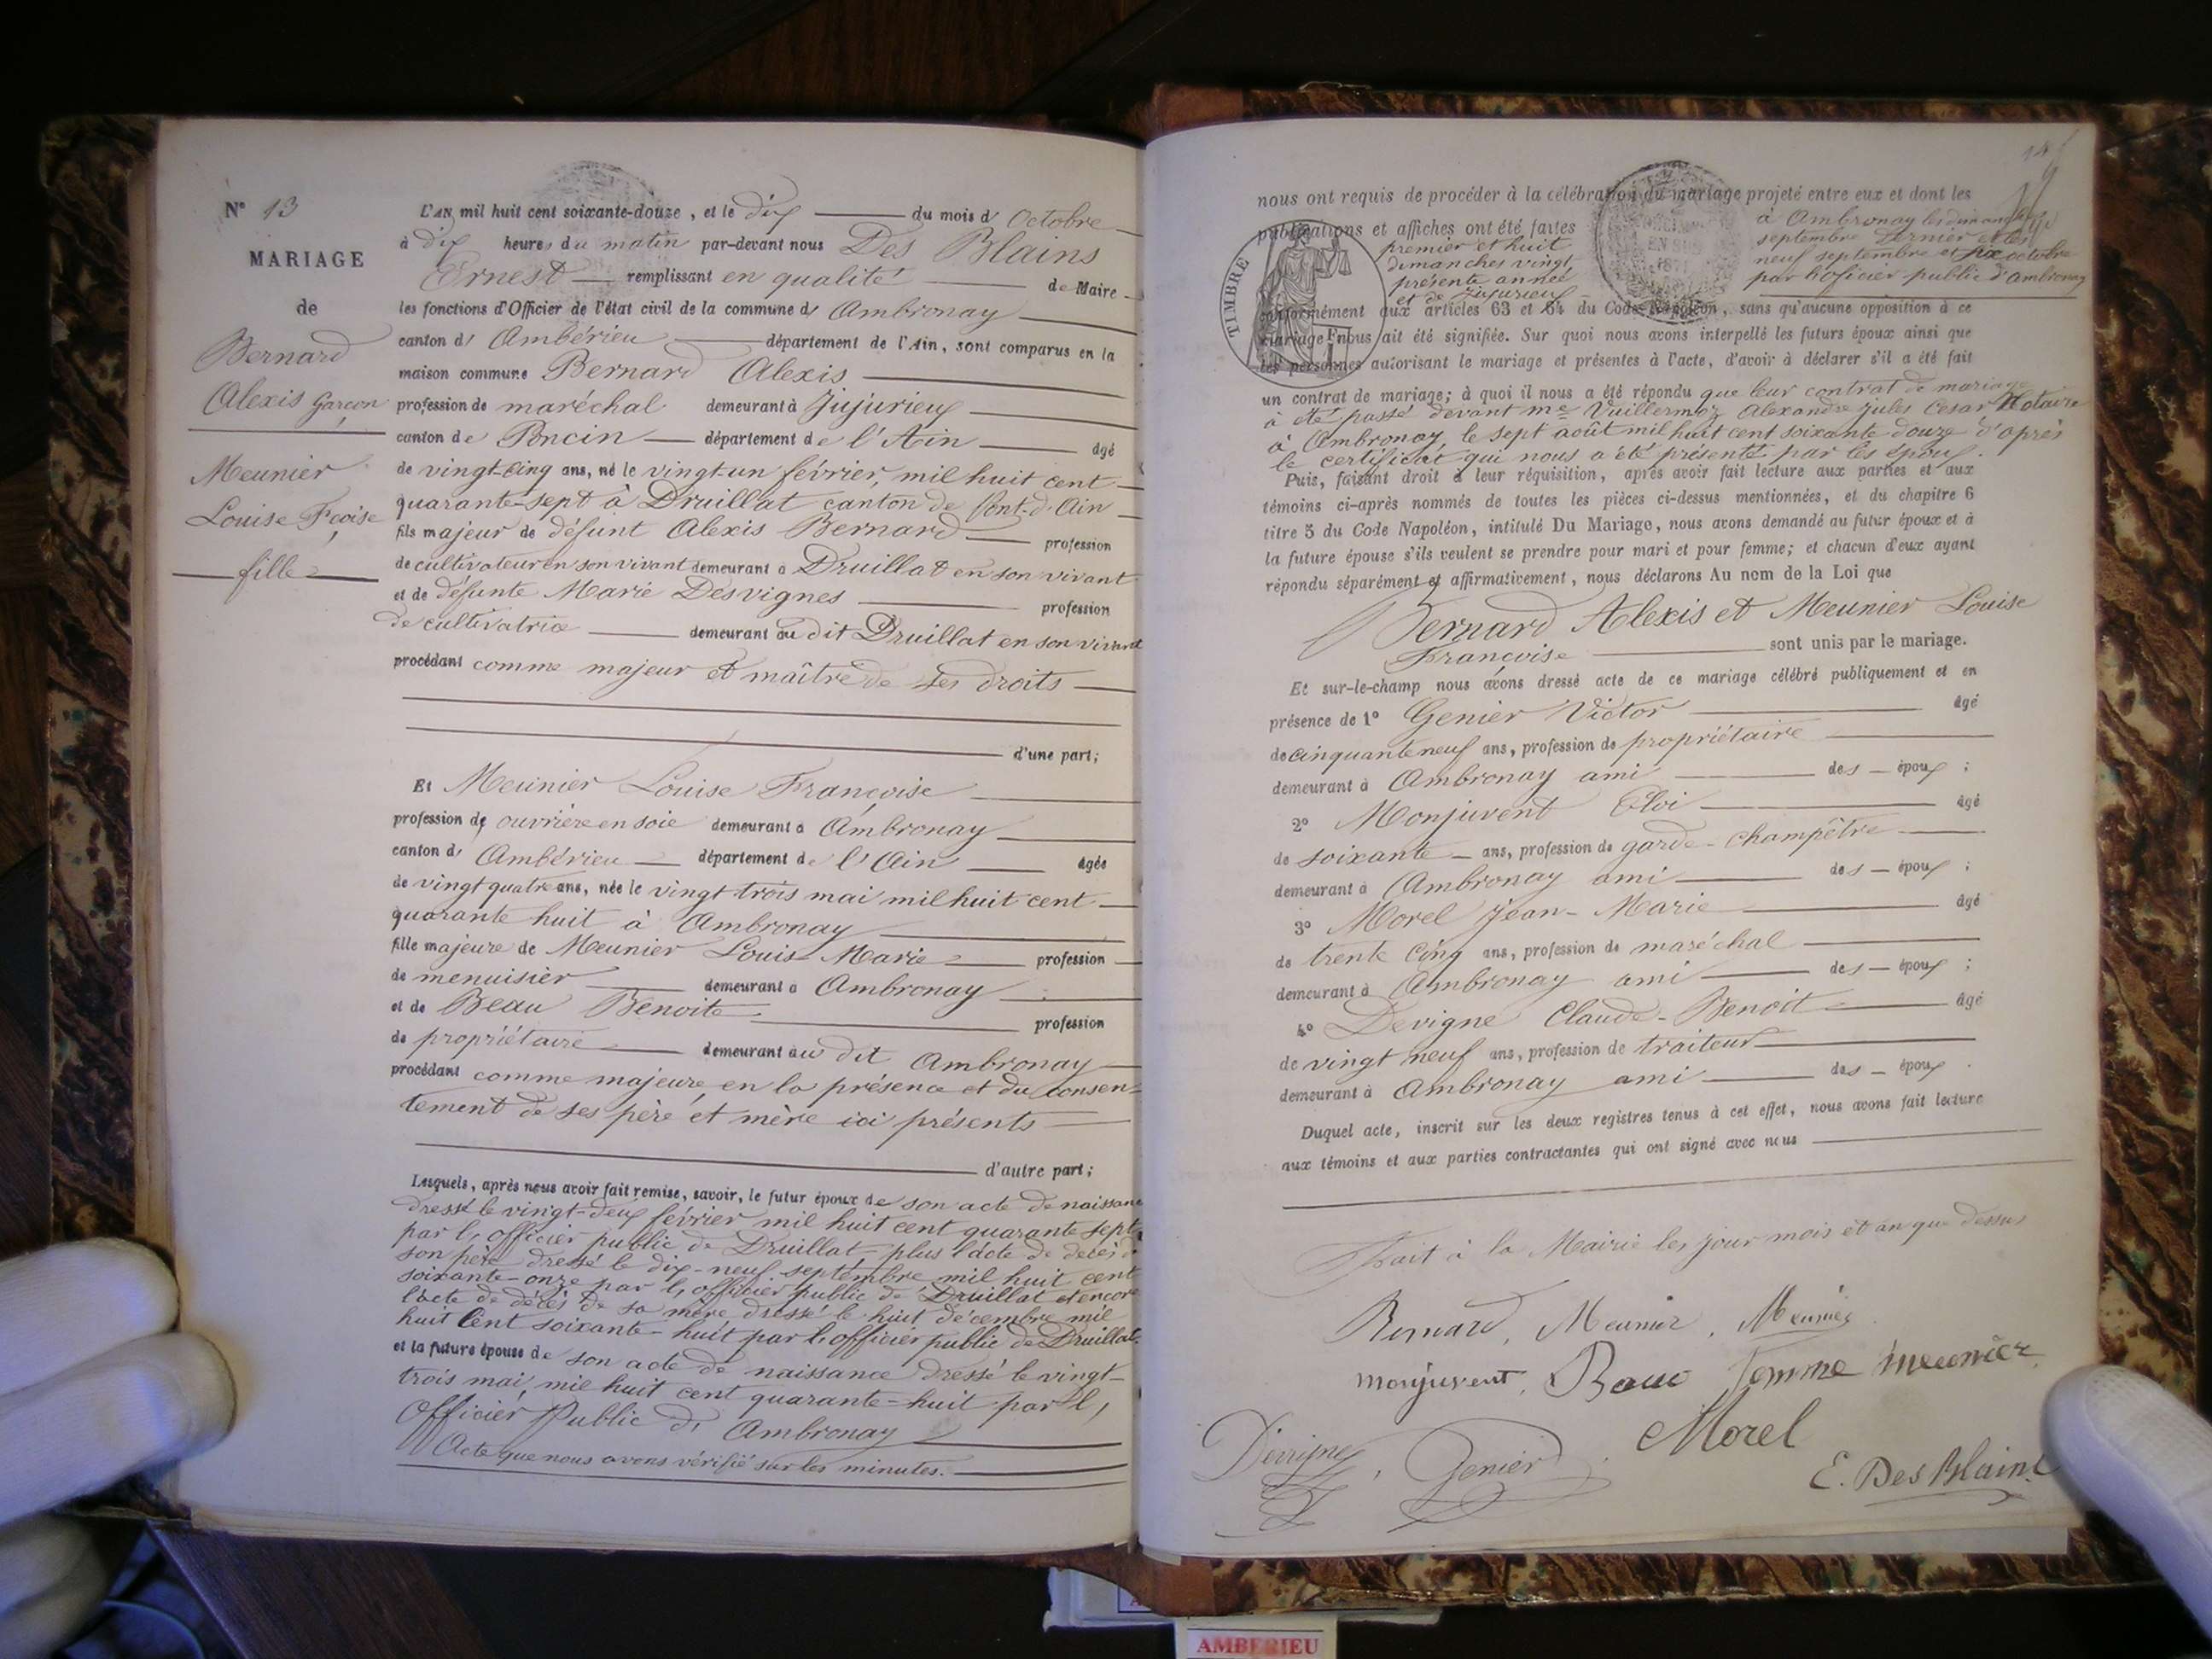 N° 13
MARIAGE
de
Bernard
Alexis Garçon
Meunier
Louise Fçoise
fille
L'AN mil huit cent soixante-douze, et le dix du mois d' Octobre
à dix heures du matin par-devant nous Des Blains
Ernest remplissant en qualité de Maire
les fonctions d'Officier de l'état civil de la commune d' Ambronay
canton d' Ambérieu département de l'Ain, sont comparus en la
maison commune Bernard Alexis
profession de maréchal demeurant à Jujurieux
canton de Poncin département de l'Ain âgé
de vingt-cinq ans, né le vingt-un février, mil huit cent
quarante-sept à Druillat canton de Pont-d'Ain
fils majeur de défunt Alexis Bernard profession
de cultivateur en son vivant demeurant à Druillat en son vivant
et de défunte Marie Desvignes profession
de cultivatrice demeurant au dit Druillat en son vivant
procédant comme majeur et maître de ses droits
d'une part;
Et Meunier Louise Françoise
profession de ouvrière en soie demeurant à Ambronay
canton d' Ambérieu département de l'Ain âgée
de vingt quatre ans, née le vingt trois mai mil huit cent
quarante huit à Ambronay
fille majeure de Meunier Louis Marie profession
de menuisier demeurant à Ambronay
et de Beau Benoite profession
de propriétaire demeurant au dit Ambronay
procédant comme majeure, en la présence et du consen-
tement de ses père et mère ici présents
d'autre part;
Lesquels, après nous avoir fait remise, savoir, le futur époux de son acte de naissance
dressé le vingt-deux février mil huit cent quarante sept
par l'officier public de Druillat plus l'acte de décès de
son père dressé le dix-neuf septembre mil huit cent
soixante-onze par l'officier public de Druillat et encore
l'acte de décès de sa mère dressé le huit décembre mil
huit cent soixante-huit par l'officier public de Druillat.
et la future épouse de son acte de naissance dressé le vingt-
trois mai, mil huit cent quarante-huit par l'
Officier Public d' Ambronay
Acte que nous avons vérifié sur les minutes.
14
nous ont requis de procéder à la célébration du mariage projeté entre eux et dont les
publications et affiches ont été faites à Ambronay les dimanches
premier et huit septembre dernier et les
dimanches vingt neuf septembre et six octobre
présente année par l'officier public d'Ambronay
et de Jujurieux
TIMBRE
conformément aux articles 63 et 64 du Code Napoléon, sans qu'aucune opposition à ce
mariage nous ait été signifiée. Sur quoi nous avons interpellé les futurs époux ainsi que
les personnes autorisant le mariage et présentes à l'acte, d'avoir à déclarer s'il a été fait
un contrat de mariage; à quoi il nous a été répondu que leur contrat de mariage
à été passé devant me Vuillermoz Alexandre Jules Cesar Notaire
à Ambronay, le sept août mil huit cent soixante douze d'après
le certificat qui nous a été présenté par les époux.
Puis, faisant droit à leur réquisition, après avoir fait lecture aux parties et aux
témoins ci-après nommés de toutes les pièces ci-dessus mentionnées, et du chapitre 6
titre 5 du Code Napoléon, intitulé Du Mariage, nous avons demandé au futur époux et à
la future épouse s'ils veulent se prendre pour mari et pour femme; et chacun d'eux ayant
répondu séparément et affirmativement, nous déclarons Au nom de la Loi que
Bernard Alexis et Meunier Louise
Françoise sont unis par le mariage.
Et sur-le-champ nous avons dressé acte de ce mariage célébré publiquement et en
présence de 1° Genier Victor âgé
de cinquante neuf ans, profession de propriétaire
demeurant à Ambronay ami des époux;
2° Monjuvent Eloi âgé
de soixante ans, profession de garde-champêtre
demeurant à Ambronay ami des époux;
3° Morel Jean-Marie âgé
de trente cinq ans, profession de maréchal
demeurant à Ambronay ami des époux;
4° Devigne Claude-Benoit âgé
de vingt neuf ans, profession de traiteur
demeurant à Ambronay ami des époux.
Duquel acte, inscrit sur les deux registres tenus à cet effet, nous avons fait lecture
aux témoins et aux parties contractantes qui ont signé avec nous
Fait à la Mairie les jour mois et an que dessus
Bernard, Meunier, Meunier
monjuvent, Baue femme meunier
Devigne, Genier Morel
E. Des Blains
AMBERIEU